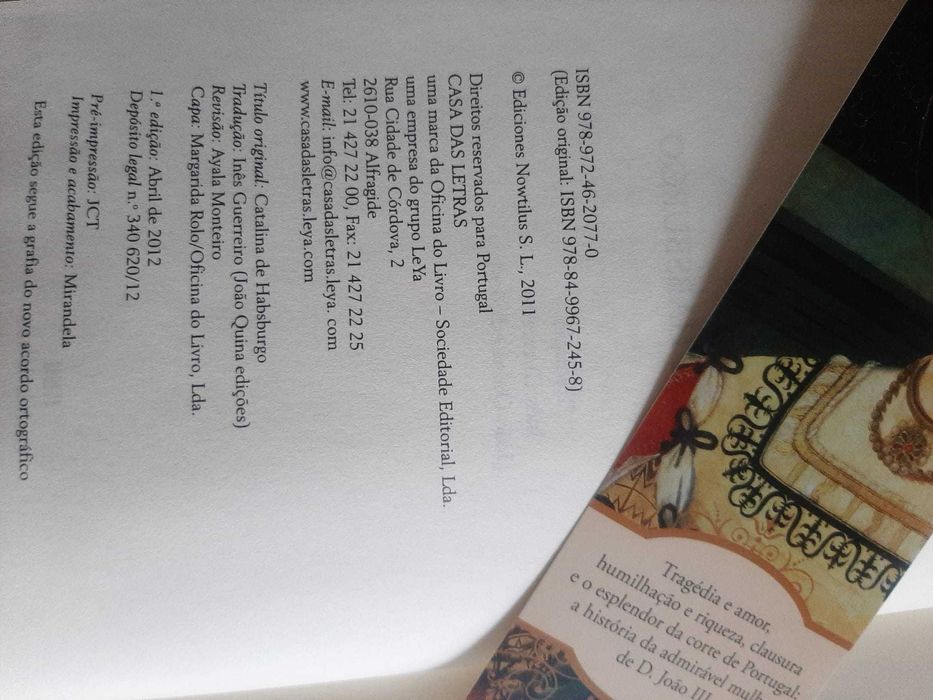 ISBN 978-972-46-2077-0
(Edição original: ISBN 978-84-9967-245-8)
© Ediciones Nowtilus S. L., 2011
Direitos reservados para Portugal
CASA DAS LETRAS
uma marca da Oficina do Livro – Sociedade Editorial, Lda.
uma empresa do grupo LeYa
Rua Cidade de Córdova, 2
2610-038 Alfragide
Tel: 21 427 22 00, Fax: 21 427 22 25
E-mail: info@casadasletras.leya. com
www.casadasletras.leya.com
Título original: Catalina de Habsburgo
Tradução: Inês Guerreiro (João Quina edições)
Revisão: Ayala Monteiro
Capa: Margarida Rolo/Oficina do Livro, Lda.
1.ª edição: Abril de 2012
Depósito legal n.º 340 620/12
Pré-impressão: JCT
Impressão e acabamento: Mirandela
Esta edição segue a grafia do novo acordo ortográfico
Tragédia e amor,
humilhação e riqueza, clausura
e o esplendor da corte de Portugal:
a história da admirável
de D. João III